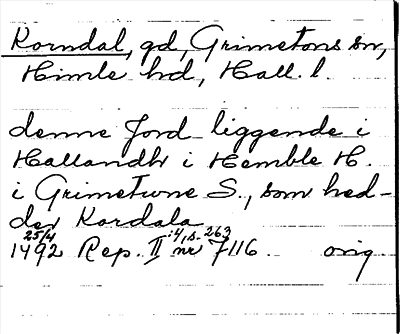 Korndal, gd, Grimetons sn,
Himle hd, Hall. l.
denne Jord liggende i
Hallandh i Hemble H.
i Grimetwne S., som hed-
der Kordala
25/4 :4, s. 263
1492 Rep. II nr 7116 orig